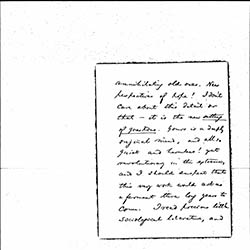 annihilating old ones. New
perspectives of hope! I don't
care about this detail or
that — it is the new setting
of questions. Yours is a deeply
original mind, and all
quiet and humour! yet
revolutionary in the extreme,
and I should suspect that
this very work would act as
a ferment there long years to
come. I read precious little
sociological literature, and